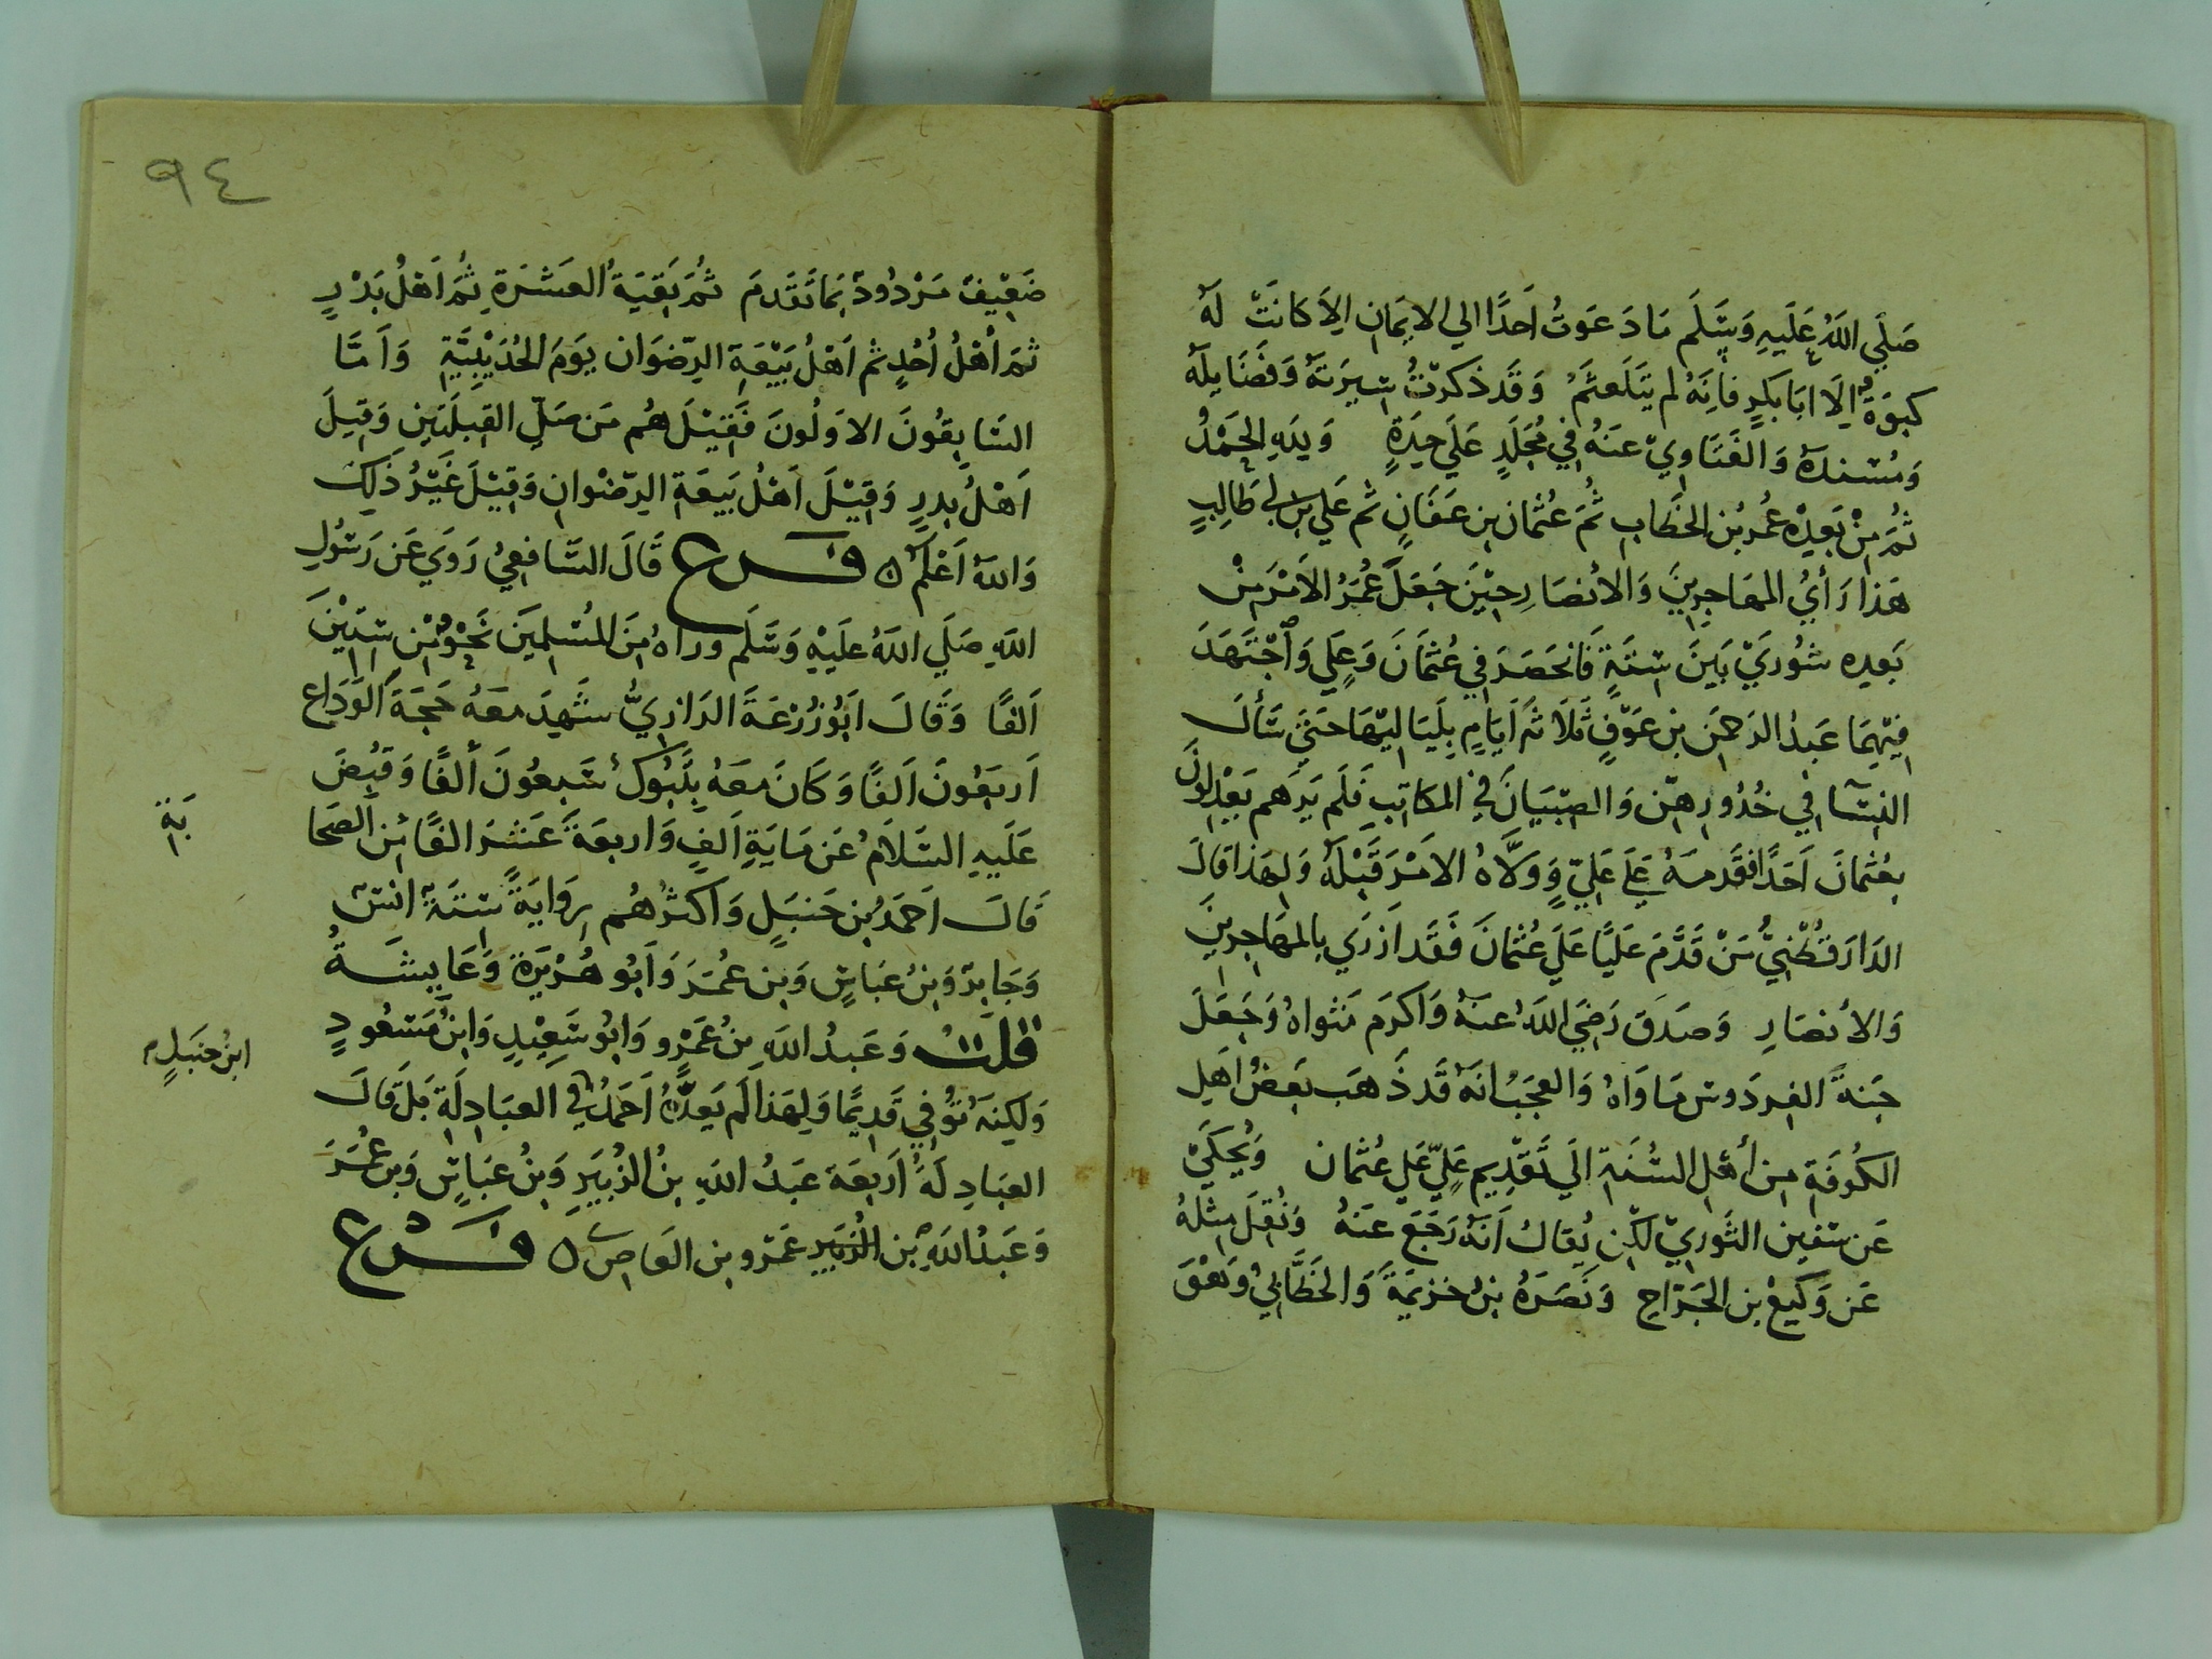 صَلَّي اللَّهُ عَلَيهِ وَسَلَّمَ مَا دَعَوتُ أَحَدًا الي الايمَانِ الاَّ كَانَتْ لَهُ
كبوَةٌ الاَّ ابَا بَكرٍ فَانَّهُ لم يَتَلَعثَمْ وَقَد ذكرتُ سِيرَتَهُ وَفَضَايِلَهُ
وَمُسْنَدَهُ وَالفَتَاوِيَ عنهُ في مُجَلَّدٍ عَلَي حِدَةٍ وَلِلهِ الحَمْدُ
ثُمَّ مِنْ بَعدِه عُمرُ بْنُ الخَطَّابِ ثُمَّ عُثمان بن عَفَّانٍ ثم عَلي بن أبي طَالِبٍ
هَذا رَأيُ المهَاجِرِينَ وَالأنصَارِ حِيْنَ جَعَلَ عُمَرُ الاَمْرَ مِنْ
بَعدِه شُورَيْ بَينَ سِتَّةٍ فَانحَصَرَ في عُثمَانَ وَعَلِي وَاجْتَهَدَ
فِيْهِمَا عَبدُ الرَّحمَنِ بن عَوْفٍ ثَلَاثَةَ أيَّامٍ بِلَيَاليهَا حَتَّى سَأَلَ
النِسَآ في خُدُورِهِنّ وَالصِّبيَانَ في المكاتِبِ فَلَم يَرَهم يَعْدِلُونَ
بعُثمَانَ أحَدًا فَقَدَّمَهُ عَلَى عَلِيٍّ وَوَلَّاهُ الأمْرَ قَبْلَهُ وَلهَذا قَالَ
الدَّارَقُطْنِيُّ مَنْ قَدَّمَ عَلَيًّا عَلَي عُثمانَ فَقَد ازرَي بالمهَاجِرِينَ
وَالأنصَارِ وَصَدَقَ رَضِيَ اللَّهُ عنهُ وَأكرَم مَثواهُ وَجَعَلَ
جَنةَ الفِردَوسِ مَاوَاهُ وَالعجَبُ انَّهُ قَد ذَهَب بَعضُ اهلِ
الكُوفَةِ مِن أهْلِ السُّنَّةِ الَي تَقدِيمِ عَلِيٍّ عَلَي عُثمان وَيُحكَيْ
عَن سفين الثَّوريّ لكِن يُقالُ أنَّهُ رَجَعَ عَنهُ وَنُقِلَ مِثلهُ
عَن وَكيعْ بن الجَرَّاحِ وَنَصَرَهُ بنُ خزيمَةَ وَالخَطَّابيُ وَهْوَ
٩٤
ضَعِيْفٌ مَرْدُودٌ بَمَا تَقَدمَ ثُمَّ بَقِيَةُ العَشرَةِ ثُمَّ اَهْلُ بَدْرٍ
ثمَّ أهْلُ أُحُدٍ ثم أهْلُ بَيْعَةِ الرِّضوَان يَومَ الحُدَيْبِيَّةِ وَأمَّا
السَّابِقُونَ الاوَّلُونَ فَقِيْلَ هُم مَن صَلّي القِبلَتَينِ وَقيلَ
أهْلُ بدرٍ وَقِيْلَ أهْلُ بَيعَةِ الرِّضْوانِ وَقِيْلَ غَيْرُ ذَلِكَ
وَاللَّهُ أعْلَمُ فَرع قَالَ الشَّافعِيُ رَوَي عَن رَسُولِ
اللَّهِ صَلَي اللَّهُ علَيْهِ وَسَّلَم وَرَاهُ مِنَ المُسْلِمِيَن نَحْوٌ مِّن سِتِّيْنَ
ألفًا وَقَالَ أبُو زُرْعَةَ الرَّازِيُّ شَهِدَ معَهُ حَجَةَ الوَدَاع
أربَعُونَ ألفًا وَكَانَ معَهُ بِتَبُوكَ سَبعُونَ ألفًا وَقبُضَ
عَلَيهِ السّلَامُ عَن مَايَةِ ألفٍ وَاربعَةَ عَشرَ الفًا مِّن الصَحَا
بَةِ
قَالَ احَمدُ بن حَنبَلٍ وَاكثرُهُم رِوَايَةً ستَةٌ انسٌ
وَجَابِرٌ وَبنُ عَبَّاسٍ وَبن عُمَرَ وَأبُو هُرَيْرَةَ وَعَايِشَةُ
قُلتُ وَعَبدُ اللَّهِ بنُ عَمْرٍو وَابُو سَعِيْدٍ وَابنُ مَسْعُودٍ
وَلكِنهُ تُوُفِي قَدِيمًا وَلِهَذا لَم يَعدَّهُ أحَمدُ في العبَادِلَةِ بَل قَالَ
ابنُ حنبَلٍ
العبَادِلَةُ أربعَة عَبدُ اللَّهِ بنُ الزُبَيرِ وَبنُ عبَاسٍ وَبن عُمَرَ
وَعَبدُ اللَّهِ بْن الزبَيرِ عَمْرو بن العَاصِ فَرْع